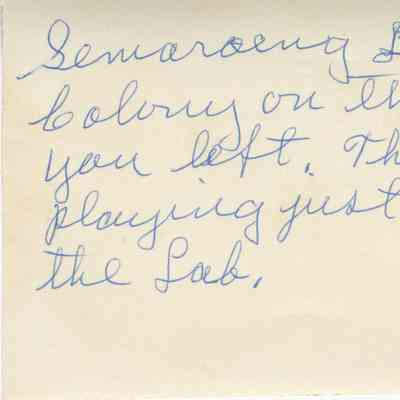 Semaroeng
Colony on th
you left. Th
playing just
the Lab.